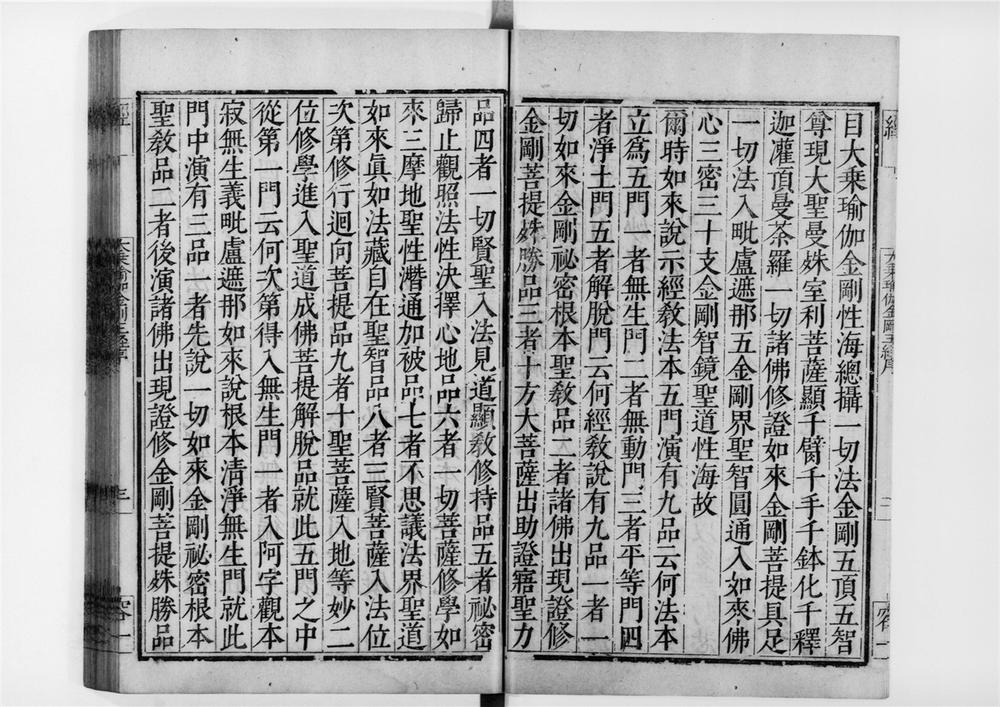 目大乗瑜伽金剛性海總攝一切法金剛五頂五智
尊現大聖曼姝室利菩薩顯千臂千手千鉢化千釋
迦灌頂曼荼羅一切諸佛修證如來金剛菩提具足
一切法入毗盧遮那五金剛界聖智圓通入如來佛
心三密三十支金剛智鏡聖道性海故
爾時如來說示經教法本五門演有九品云何法本
立爲五門一者無生門二者無動門三者平等門四
者淨土門五者解脫門云何經教說有九品一者一
切如來金剛祕密根本聖教品二者諸佛出現證修
金剛菩提姝勝品三者十方大菩薩出助證寤聖力
品四者一切賢聖入法見道顯教修持品五者祕密
歸止觀照法性決擇心地品六者一切菩薩修學如
來三摩地聖性潛通加被品七者不思議法界聖道
如來眞如法藏自在聖智品八者三賢菩薩入法位
次第修行迴向菩提品九者十聖菩薩入地等妙二
位修學進入聖道成佛菩提解脫品就此五門之中
從第一門云何次第得入無生門一者入阿字觀本
寂無生義毗盧遮那如來說根本淸淨無生門就此
門中演有三品一者先說一切如來金剛祕密根本
聖教品二者後演諸佛出現證修金剛菩提姝勝品